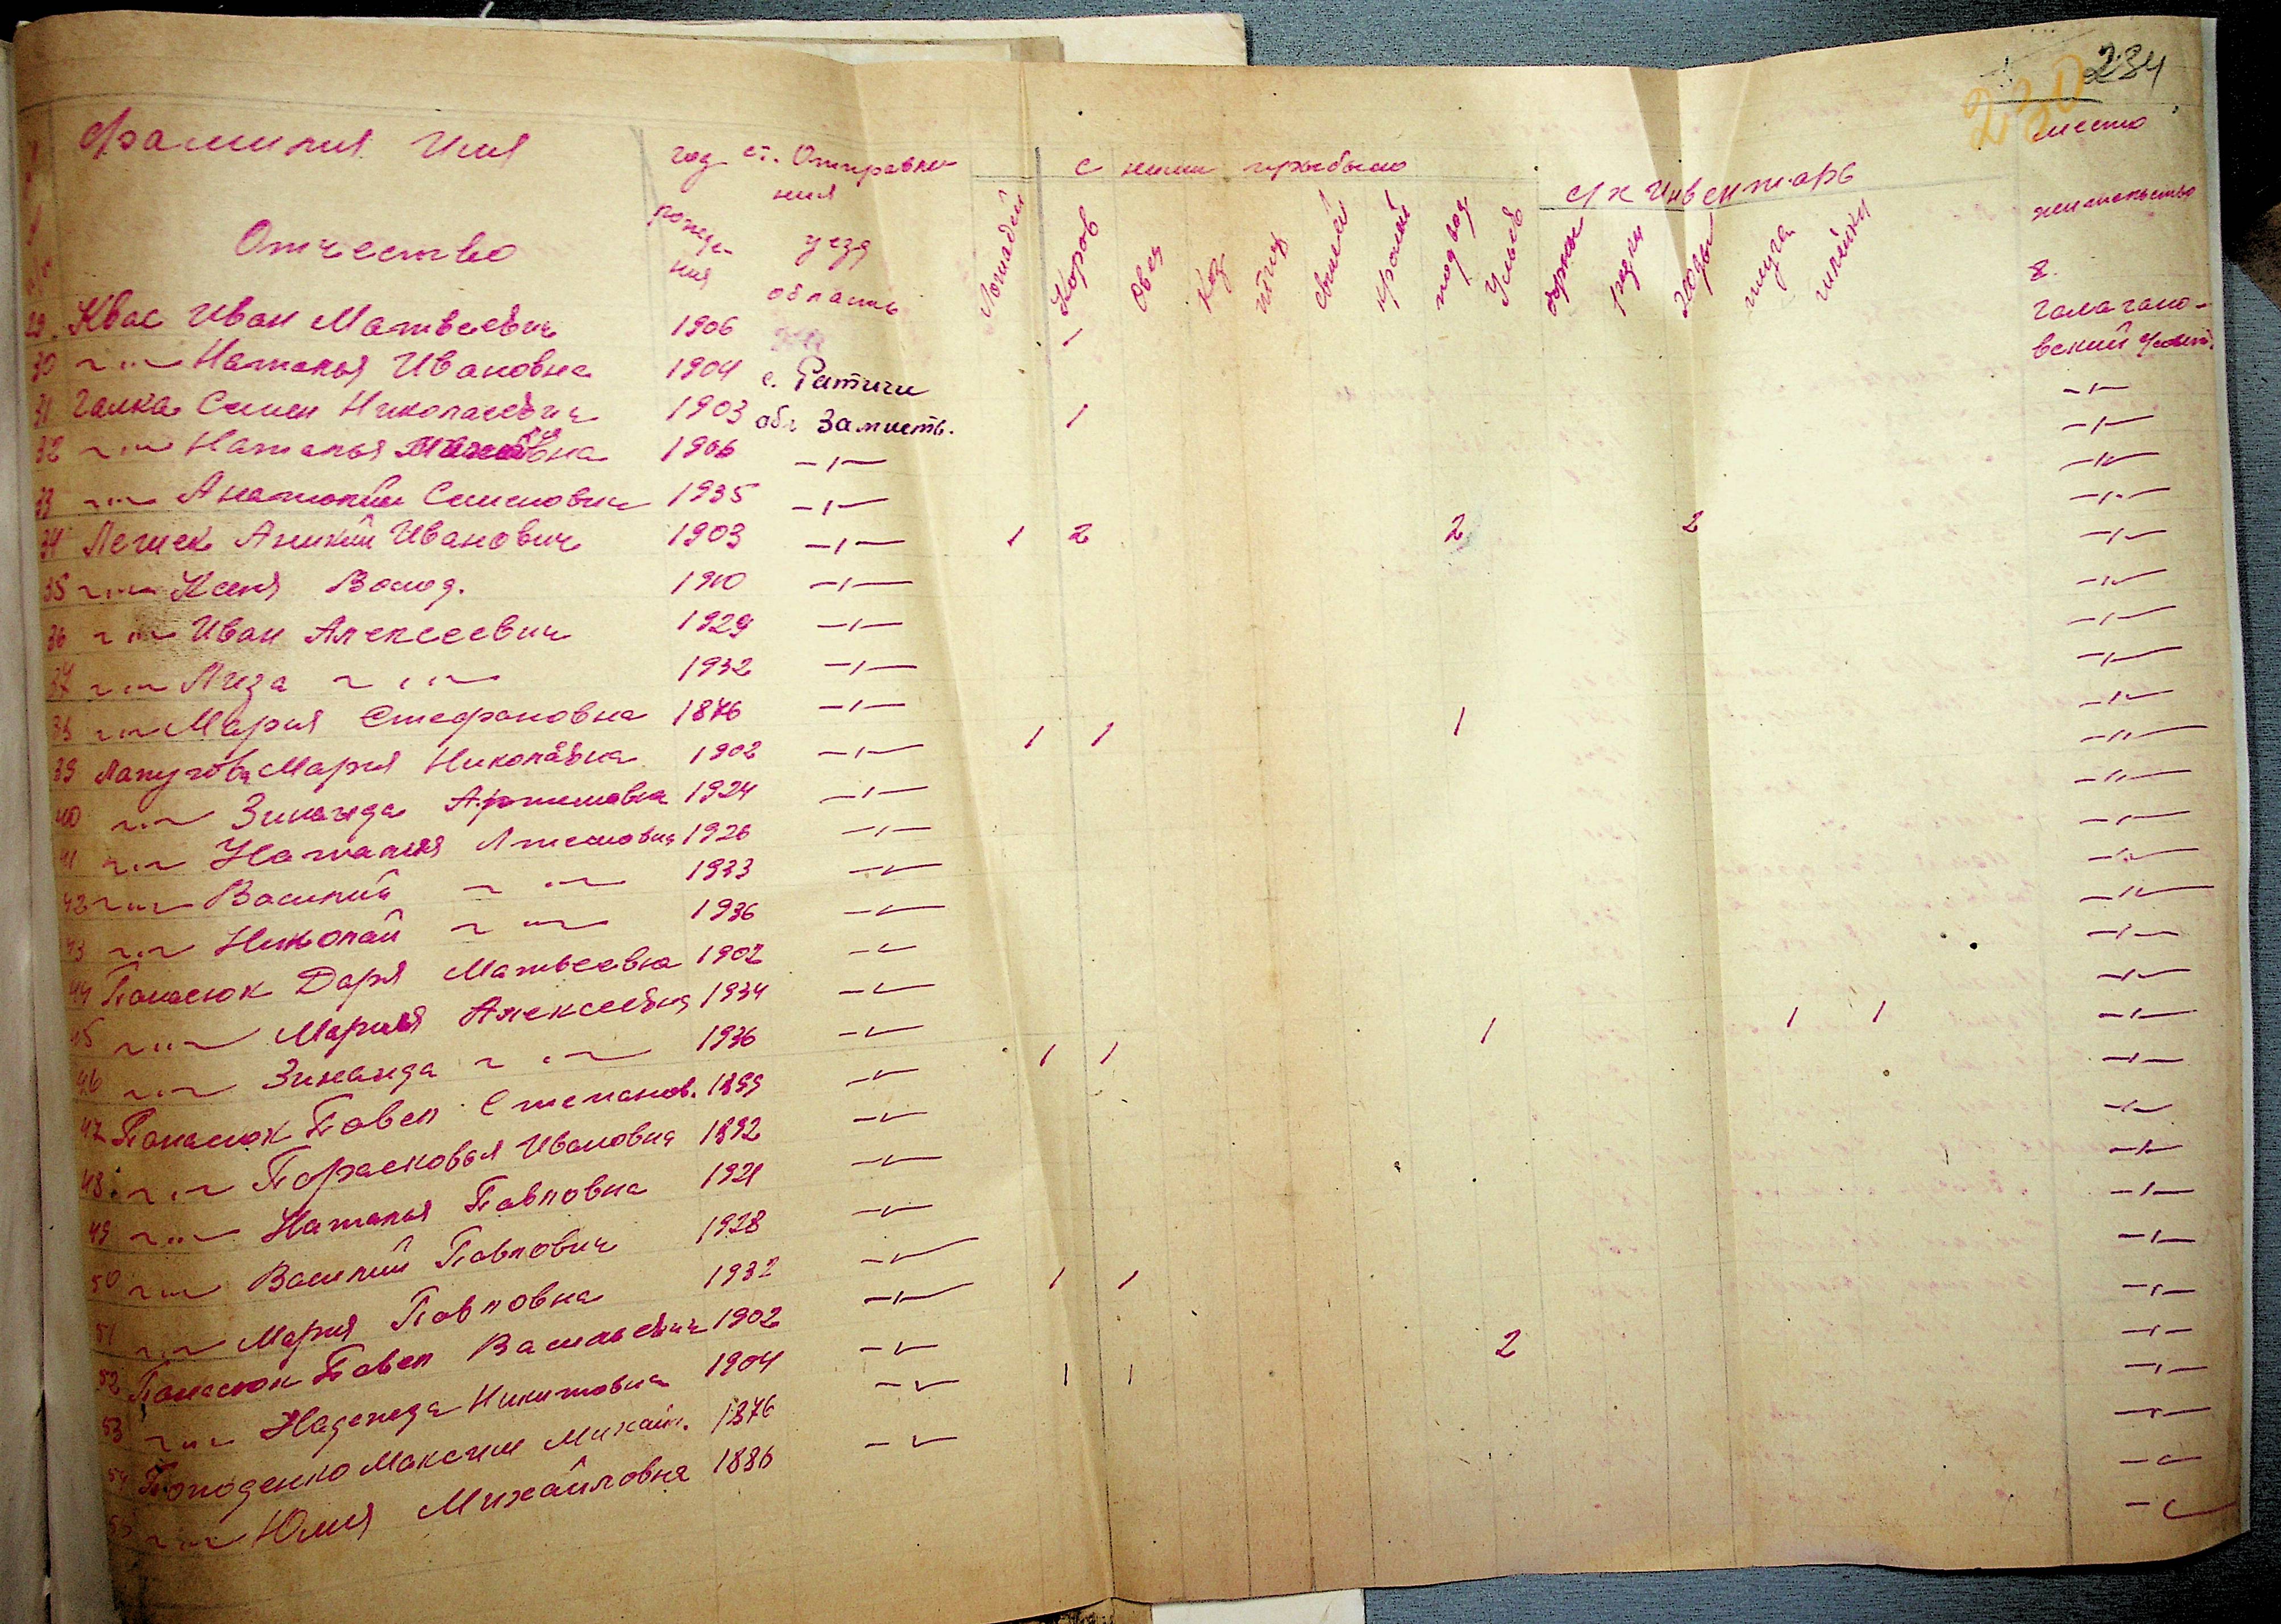 234
230
Фамилия Имя
Отчество
год рожде-
ния
ст. Отправле-
ния
уезд
область
с ними прибыло
с/х Инвентарь
место
жительство
Лошадей Коров Овец Коз птиц свиней подвод Ульев плуга
8.
29. Квас Иван Матвеевич 1906 1 Галагано-
вский
30 -"- Наталья Ивановна 1904 с. Ратичи -"-
31 Галка Семен Николаевич 1903 обл Замисть. 1 -"-
32 -"- Наталья 1906 -"- -"-
33 -"- Анатолий Семенович 1935 -"- -"-
34 Лешек Аникий Иванович 1903 -"- 1 2 2 2 -"-
35 -"- Ксеня Волод. 1910 -"- -"-
36 -"- Иван Алексеевич 1929 -"- -"-
37 -"- Лиза -"- 1932 -"- -"-
38 -"- Мария Стефановна 1876 -"- -"-
39 Мария Николаевна 1902 -"- 1 1 1 -"-
40 -"- Зинаида Артемовна 1924 -"- -"-
41 -"- Наталия Артемовна 1926 -"- -"-
42 -"- Василий -"- 1933 -"- -"-
43 -"- Николай -"- 1936 -"- -"-
44 Панасюк Даря Матвеевна 1902 -"- -"-
45 -"- Мария Алексеевна 1934 -"- -"-
46 -"- Зинаида -"- 1936 -"- -"-
47 Панасюк Павел Степанов. 1899 -"- 1 1 1 1 1 -"-
48. -"- Парасковья Ивановна 1892 -"- -"-
49 -"- Наталья Павловна 1921 -"- -"-
50 -"- Василий Павлович 1928 -"- -"-
51 -"- Мария Павловна 1932 -"- -"-
52 Панасюк Павел Васильевич 1902 -"- 1 1 -"-
53 -"- Надежда Никитовна 1904 -"- -"-
54 Поподенко Максим Михайл. 1876 -"- 1 1 2 -"-
55 -"- Юлия Михайловна 1886 -"- -"-